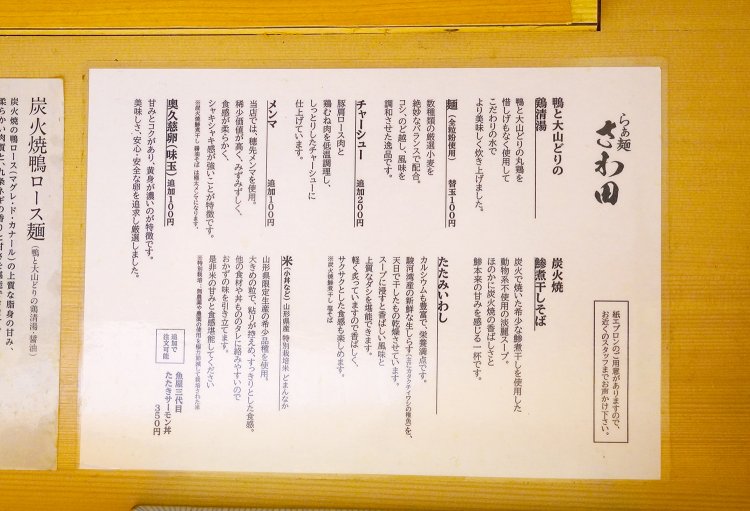 らぁ麺
さわ田
紙エプロンのご用意がありますので、
お近くのスタッフまでお声かけ下さい。
鴨と大山どりの
鶏清湯
鴨と大山どりの丸鶏を
惜しげもなく使用して
こだわりの水で
より美味しく炊き上げました。
麺（全粒粉使用） 替玉100円
数種類の厳選小麦を
絶妙なバランスで配合。
コシ、のど越し、風味を
調和させた逸品です。
チャーシュー 追加200円
豚肩ロース肉と
鶏むね肉を低温調理し、
しっとりしたチャーシューに
仕上げています。
メンマ 追加100円
当店では、穂先メンマを使用。
稀少価値が高く、みずみずしく、
食感が柔らかく、
シャキシャキ感が強いことが特徴です。
奥久慈卵（味玉） 追加100円
甘みとコクがあり、黄身が濃いのが特徴です。
美味しさ、安心・安全な卵を追求し厳選しました。
炭火焼
鯵煮干しそば
炭火で焼いた希少な鯵煮干しを使用した
動物系不使用の淡麗スープ。
ほのかに炭火焼の香ばしさと
鯵本来の甘みを感じる一杯です。
たたみいわし
カルシウムも豊富で、栄養満点です。
駿河湾産の新鮮な生しらす（主にカタクチイワシの稚魚）を、
天日で干したもの乾燥させています。
スープに浸すと香ばしい風味と
上質なダシを堪能できます。
軽く炙っていますので香ばしく、
サクサクとした食感も楽しめます。
※炭火焼鯵煮干し塩そば
米（小丼など）山形県産 特別栽培米 どまんなか
山形県限定生産の希少品種を使用。
大きめの粒で、粘りが控えめ、すっきりとした食感。
他の食材や丼もののタレに絡みやすいので
おかずの味を引き立てます。
是非米の甘みと食感堪能してください
追加で
注文可能
魚屋三代目
たたきサーモン丼
350円
炭火焼鴨ロース麺（鴨と大山どりの鶏清湯・醤油）
炭火焼の鴨ロース（マグレ・ド・カナール）の上質な脂身の甘み、